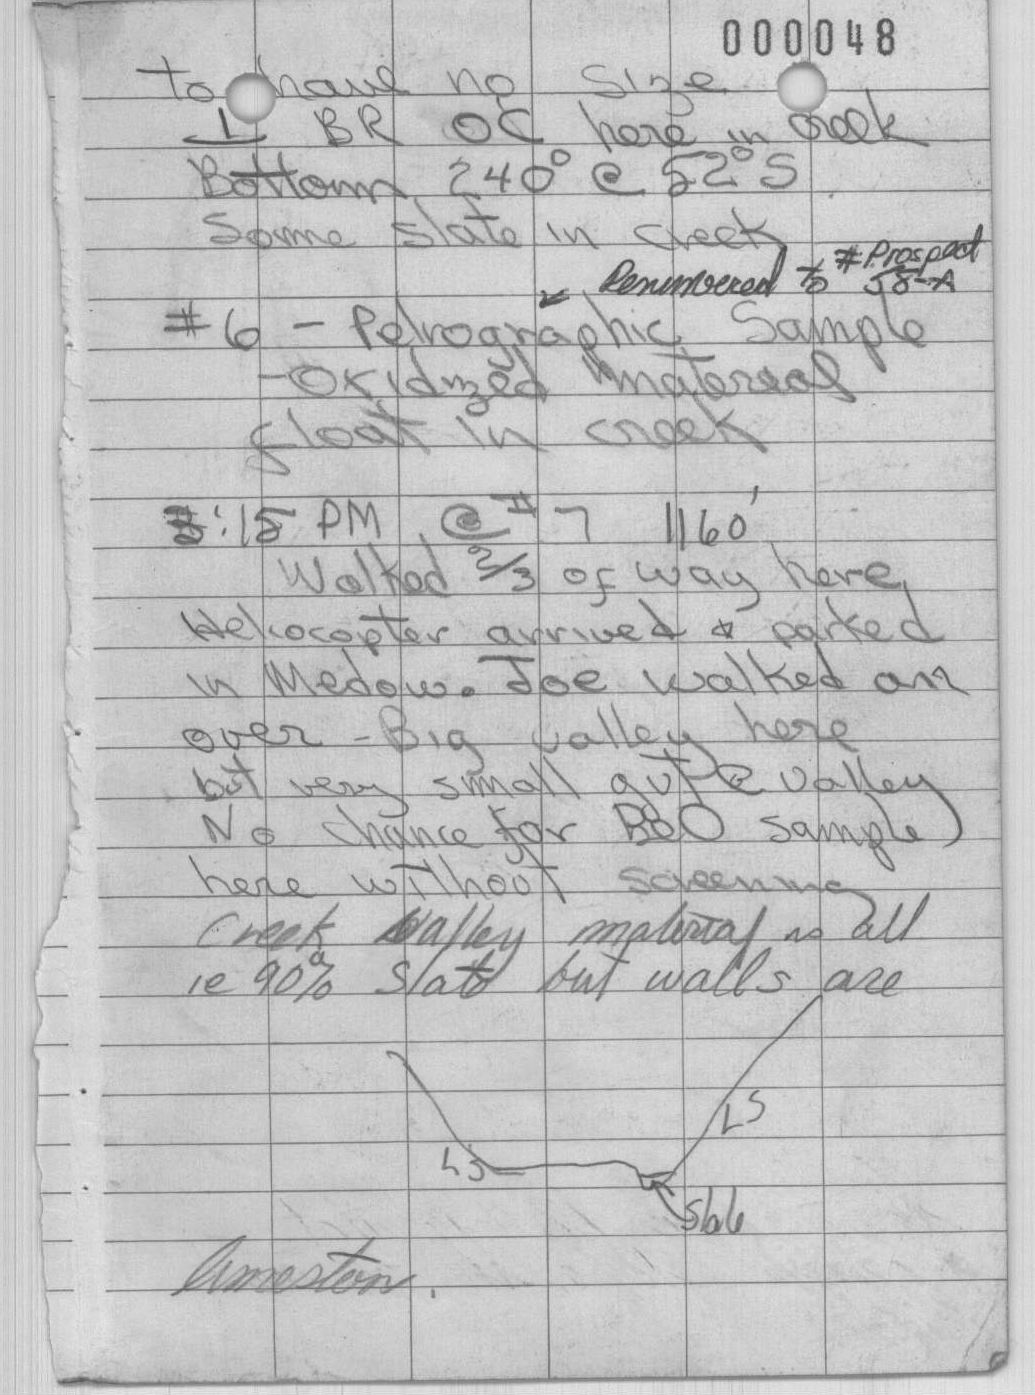 000048
to have no size
⊥ BR OC here in creek
Bottom 240° @ 52° S
Some slate in creek
Renumbered to #Prospect
58-A
#6 - Petrographic Sample
- Oxidized material
float in creek
3:15 PM @ #7 1160'
Walked 2/3 of way here,
Helicocopter arrived & parked
in Medow. Joe walked on
over - Big valley here
but very small gut @ valley
No chance for sample
here without screening
Creek Valley material is all
ie 90% Slate but walls are
LS
LS
Slate
limestone.